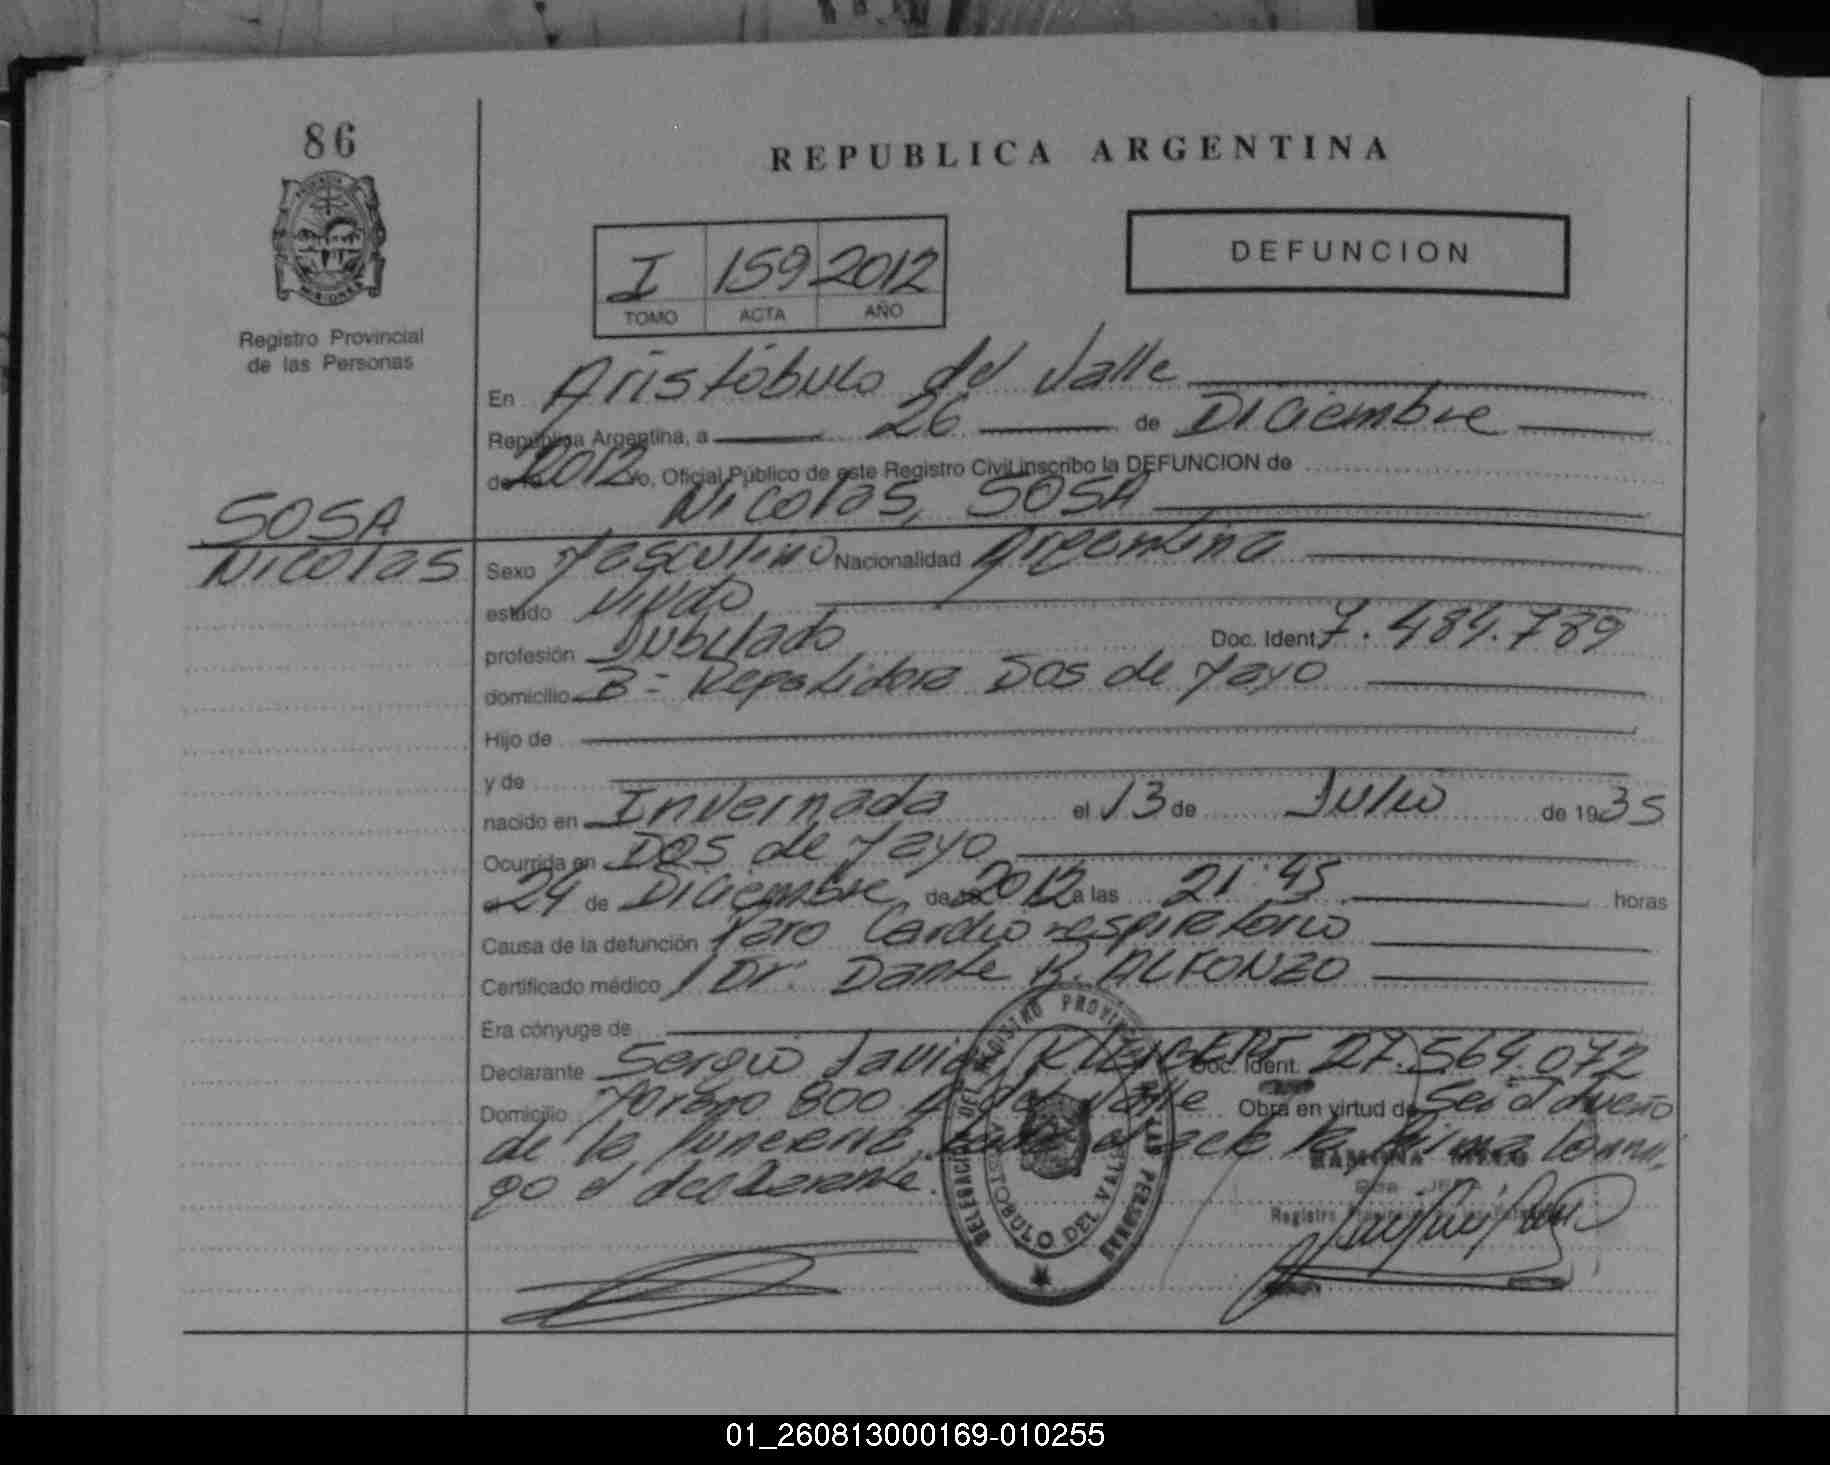 86
REPUBLICA ARGENTINA
Registro Provincial
de las Personas
I 159 2012
TOMO ACTA AÑO
DEFUNCION
En Aristóbulo del Valle
República Argentina, a 26 de Diciembre
2012 Yo, Oficial Público de este Registro Civil inscribo la DEFUNCION de
Nicolas, SOSA
SOSA
Nicolas
Sexo Masculino Nacionalidad Argentina
estado Viudo
profesión Jubilado Doc. Ident. 7.484.789
domicilio B= Repetidora Dos de Mayo
Hijo de
y de
nacido en Invernada el 13 de Julio de 1935
Ocurrida en Dos de Mayo
el 24 de Diciembre de 2012 a las 21:45 horas
Causa de la defunción Paro Cardio respiratorio
Certificado médico Dr. Dante R. ALFONZO
Era cónyuge de
Declarante Sergio Javier Doc. Ident. 27.564.072
Domicilio Moreno 800 A. del Valle Obra en virtud de Ser el dueño
de la funeraria, el acta la firma
go el declarante.
DELEGACION DEL REGISTRO PROVINCIAL DE LAS PERSONAS
ARISTOBULO DEL VALLE
RAMONA
Registro
01_260813000169-010255